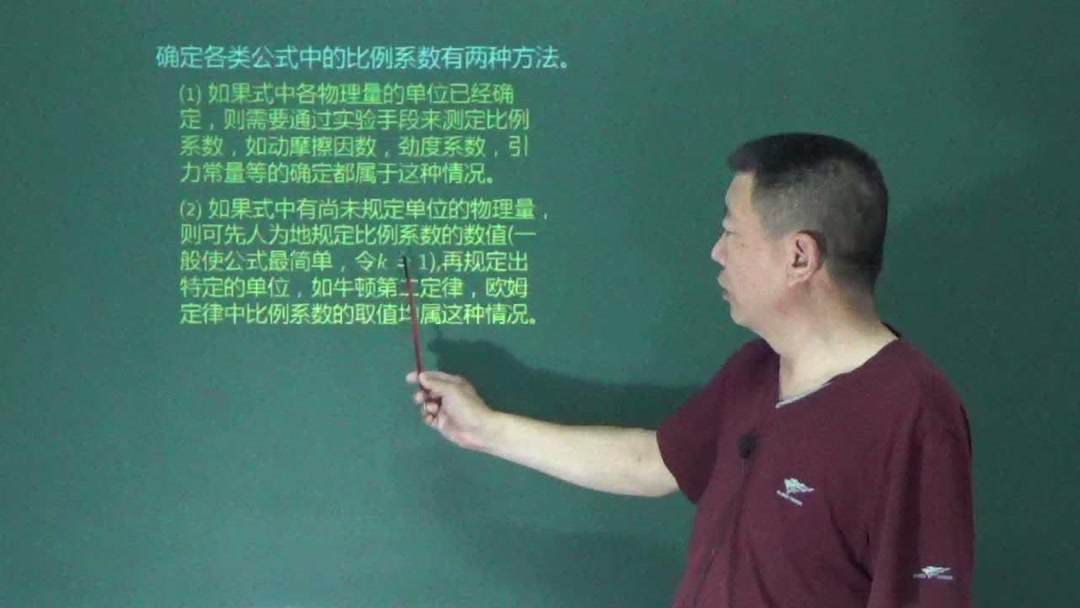 确定各类公式中的比例系数有两种方法。
(1) 如果式中各物理量的单位已经确
定，则需要通过实验手段来测定比例
系数，如动摩擦因数，劲度系数，引
力常量等的确定都属于这种情况。
(2) 如果式中有尚未规定单位的物理量，
则可先人为地规定比例系数的数值(一
般使公式最简单，令k = 1),再规定出
特定的单位，如牛顿第二定律，欧姆
定律中比例系数的取值均属这种情况。